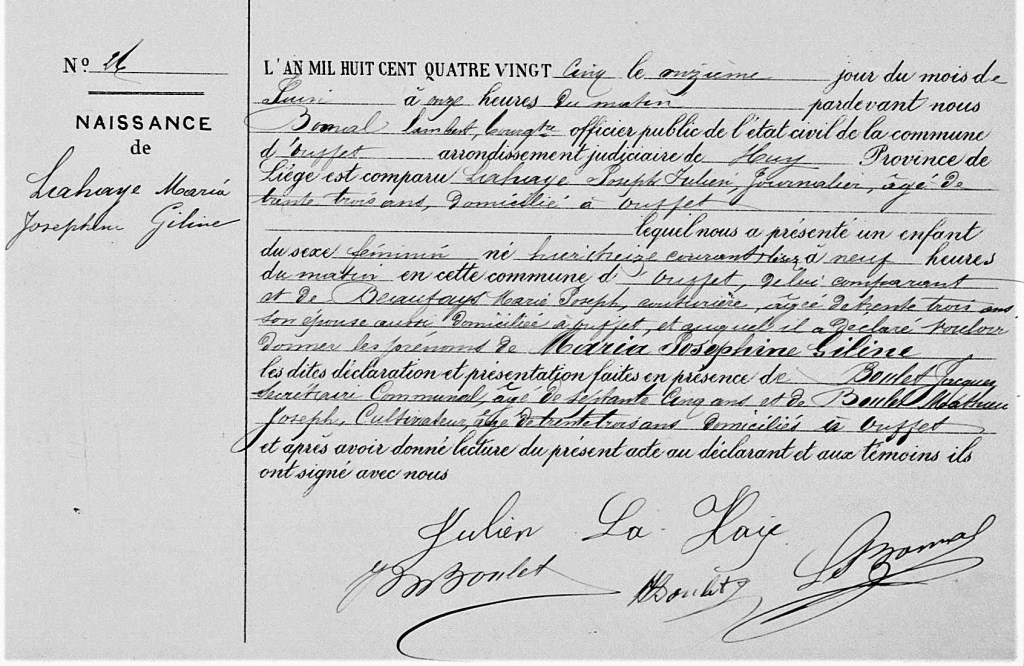 Nº 26
NAISSANCE
de
Lahaye Maria
Josephine Giline
L'AN MIL HUIT CENT QUATRE VINGT Cinq le onzième jour du mois de
Juin à onze heures du matin pardevant nous
Bonmal Lambert, bourgtre officier public de l'état civil de la commune
d'Ouffet arrondissement judiciaire de Huy Province de
Liége est comparu Lahaye Joseph Julien, Journalier, âgé de
trente trois ans, domicilié à Ouffet
lequel nous a présenté un enfant
du sexe féminin né hier courant à neuf heures
du matin en cette commune d'Ouffet, de lui comparant
et de Beaufays Marie Joseph, couturière, âgée de trente trois ans
son épouse aussi domiciliée à Ouffet, et auquel il a déclaré vouloir
donner les prenoms de Maria Josephine Giline
les dites déclaration et présentation faites en présence de Boulet Jacques
Secrétaire Communal, âgé de septante cinq ans et de Boulet Mathieu
Joseph, Cultivateur, âgé de trente trois ans domiciliés à Ouffet
et après avoir donné lecture du présent acte au déclarant et aux témoins ils
ont signé avec nous
Julien La Haye
Boulet Boulet Bonmal